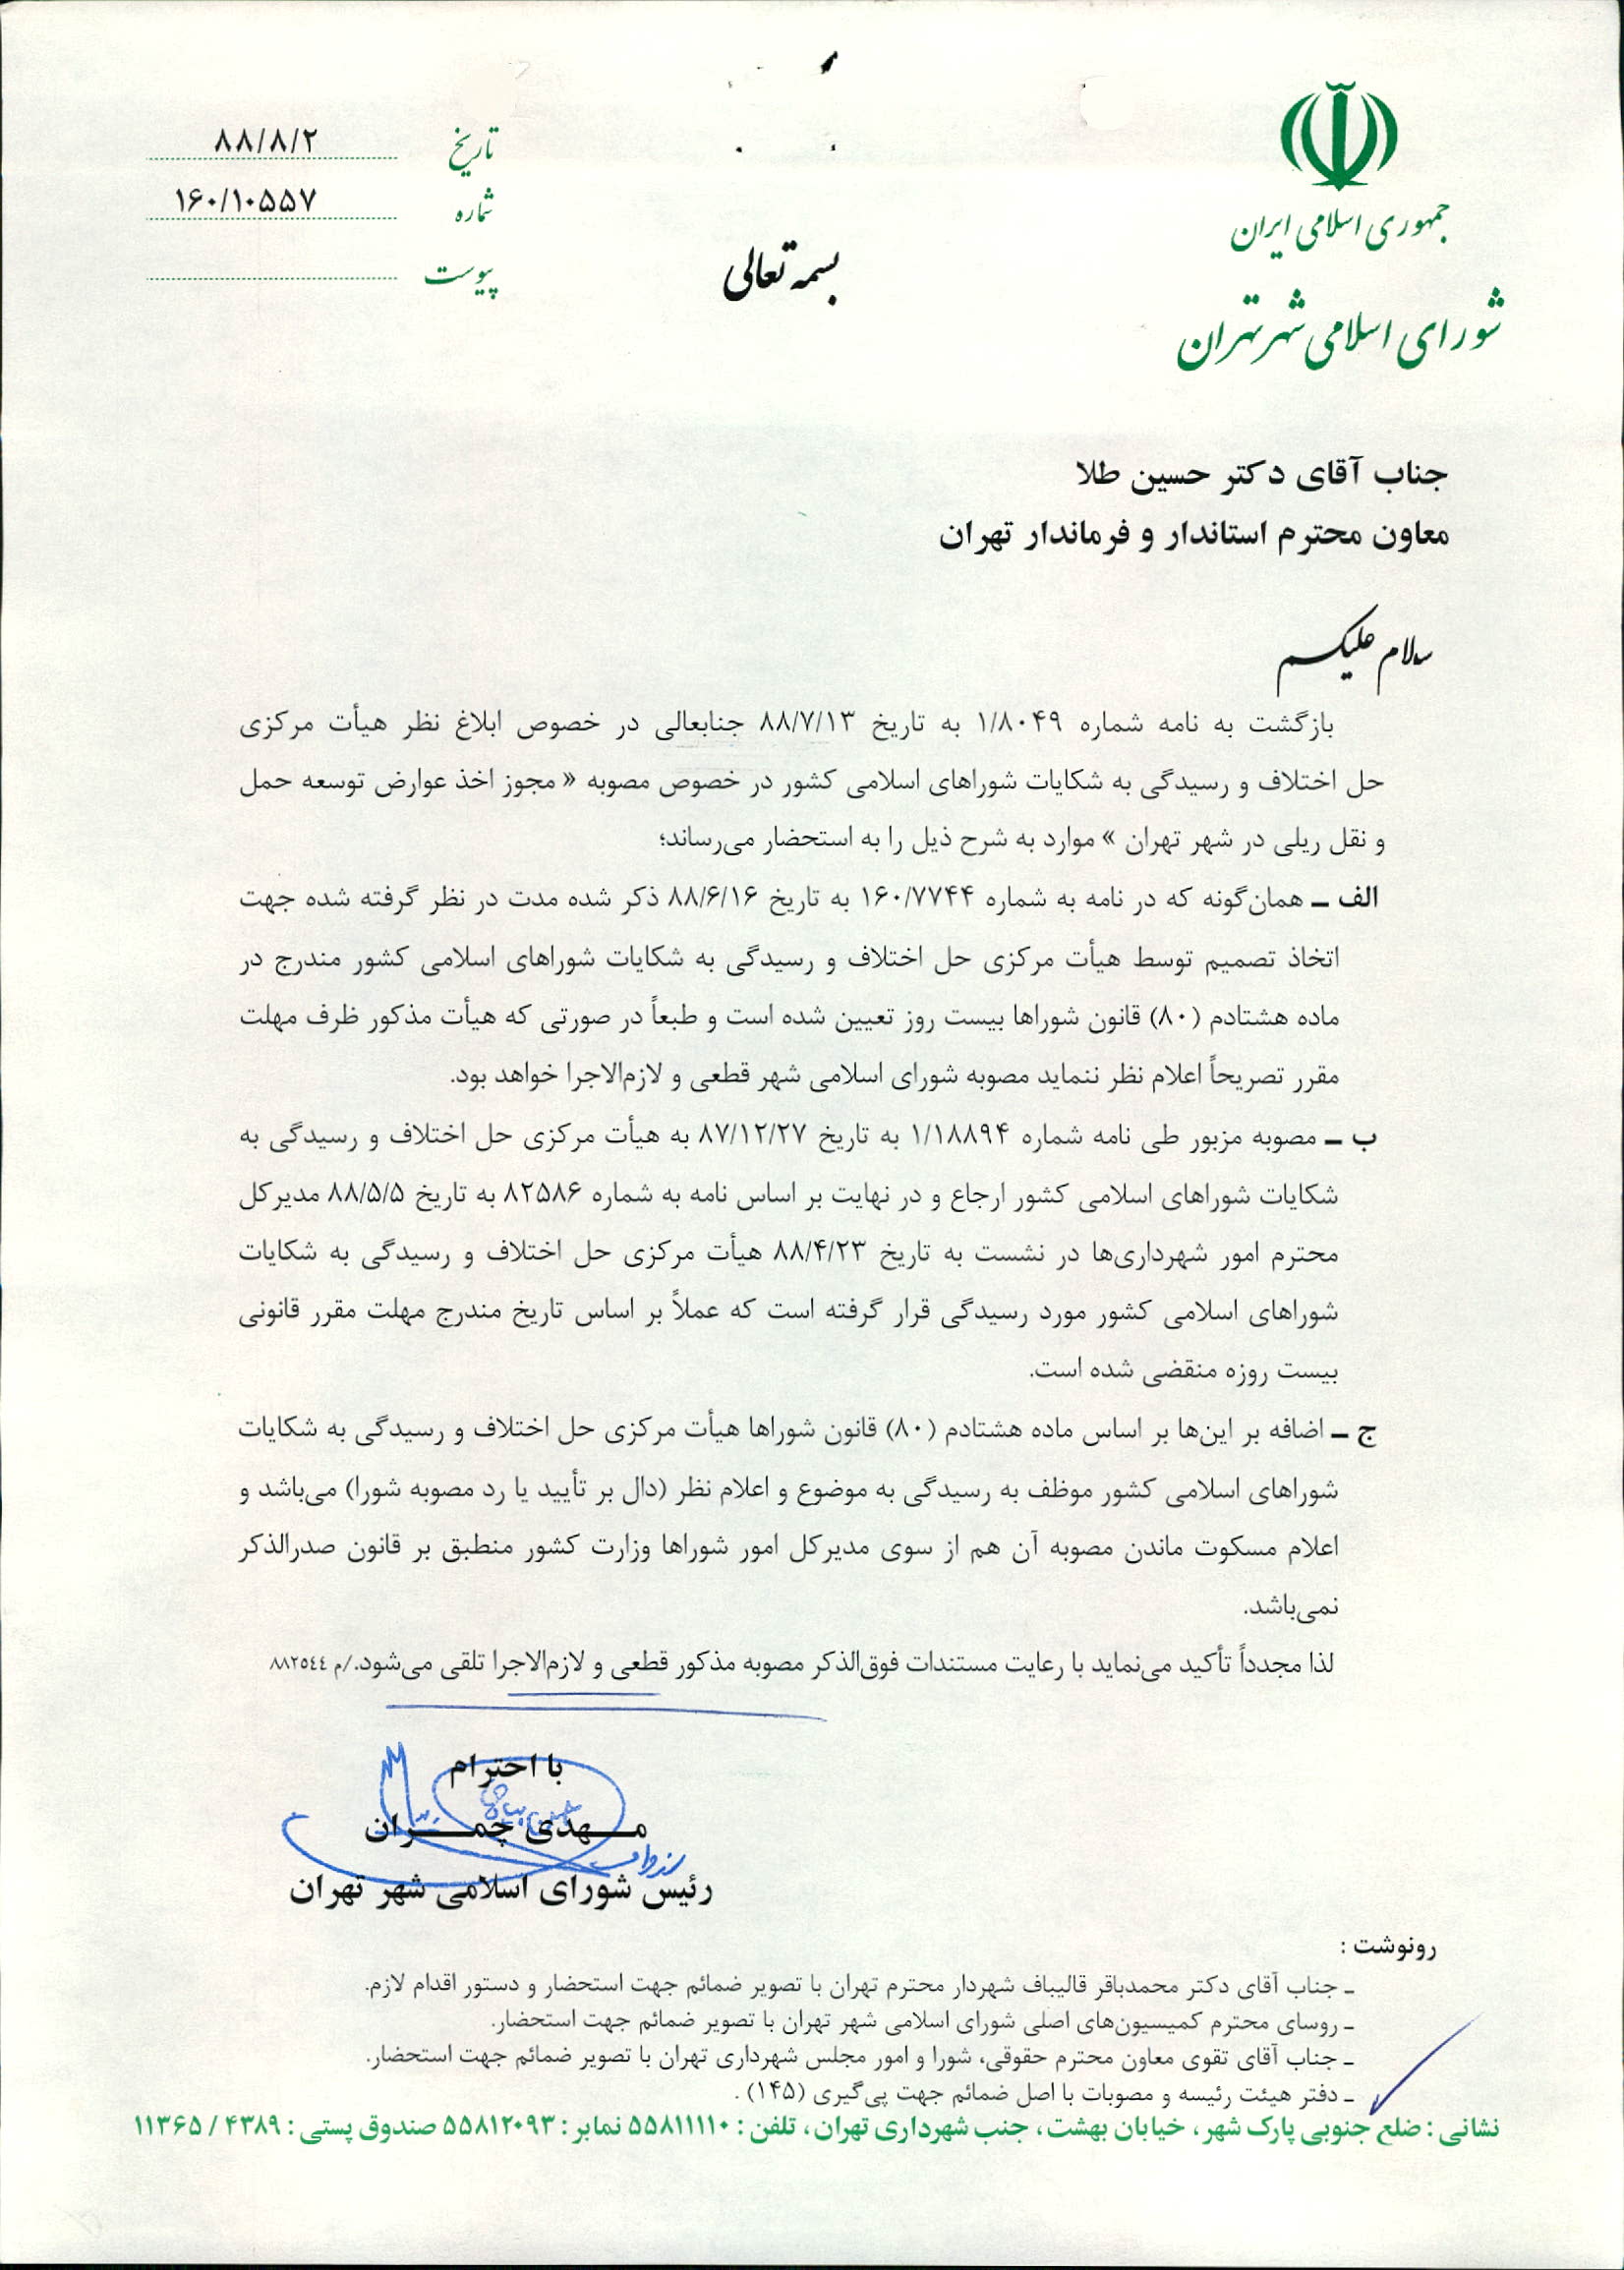 جمهوری اسلامی ایران
شورای اسلامی شهر تهران
تاریخ ۸۸/۸/۲
شماره ۱۶۰/۱۰۵۵۷
پیوست
بسمه تعالی
جناب آقای دکتر حسین طلا
معاون محترم استاندار و فرماندار تهران
سلام علیکم
بازگشت به نامه شماره ۱/۸۰۴۹ به تاریخ ۸۸/۷/۱۳ جنابعالی در خصوص ابلاغ نظر هیأت مرکزی
حل اختلاف و رسیدگی به شکایات شوراهای اسلامی کشور در خصوص مصوبه « مجوز اخذ عوارض توسعه حمل
و نقل ریلی در شهر تهران » موارد به شرح ذیل را به استحضار می‌رساند؛
الف ـ همان‌گونه که در نامه به شماره ۱۶۰/۷۷۴۴ به تاریخ ۸۸/۶/۱۶ ذکر شده مدت در نظر گرفته شده جهت
اتخاذ تصمیم توسط هیأت مرکزی حل اختلاف و رسیدگی به شکایات شوراهای اسلامی کشور مندرج در
ماده هشتادم (۸۰) قانون شوراها بیست روز تعیین شده است و طبعاً در صورتی که هیأت مذکور ظرف مهلت
مقرر تصریحاً اعلام نظر ننماید مصوبه شورای اسلامی شهر قطعی و لازم‌الاجرا خواهد بود.
ب ـ مصوبه مزبور طی نامه شماره ۱/۱۸۸۹۴ به تاریخ ۸۷/۱۲/۲۷ به هیأت مرکزی حل اختلاف و رسیدگی به
شکایات شوراهای اسلامی کشور ارجاع و در نهایت بر اساس نامه به شماره ۸۲۵۸۶ به تاریخ ۸۸/۵/۵ مدیرکل
محترم امور شهرداری‌ها در نشست به تاریخ ۸۸/۴/۲۳ هیأت مرکزی حل اختلاف و رسیدگی به شکایات
شوراهای اسلامی کشور مورد رسیدگی قرار گرفته است که عملاً بر اساس تاریخ مندرج مهلت مقرر قانونی
بیست روزه منقضی شده است.
ج ـ اضافه بر این‌ها بر اساس ماده هشتادم (۸۰) قانون شوراها هیأت مرکزی حل اختلاف و رسیدگی به شکایات
شوراهای اسلامی کشور موظف به رسیدگی به موضوع و اعلام نظر (دال بر تأیید یا رد مصوبه شورا) می‌باشد و
اعلام مسکوت ماندن مصوبه آن هم از سوی مدیرکل امور شوراها وزارت کشور منطبق بر قانون صدرالذکر
نمی‌باشد.
لذا مجدداً تأکید می‌نماید با رعایت مستندات فوق‌الذکر مصوبه مذکور قطعی و لازم‌الاجرا تلقی می‌شود./م ۸۸۲۵٤٤
با احترام
مـهدی چمـران
رئیس شورای اسلامی شهر تهران
رونوشت :
ـ جناب آقای دکتر محمدباقر قالیباف شهردار محترم تهران با تصویر ضمائم جهت استحضار و دستور اقدام لازم.
ـ روسای محترم کمیسیون‌های اصلی شورای اسلامی شهر تهران با تصویر ضمائم جهت استحضار.
ـ جناب آقای تقوی معاون محترم حقوقی، شورا و امور مجلس شهرداری تهران با تصویر ضمائم جهت استحضار.
ـ دفتر هیئت رئیسه و مصوبات با اصل ضمائم جهت پی‌گیری (۱۴۵) .
نشانی : ضلع جنوبی پارک شهر، خیابان بهشت، جنب شهرداری تهران، تلفن : ۵۵۸۱۱۱۱۰ نمابر : ۵۵۸۱۲۰۹۳ صندوق پستی : ۴۳۸۹ / ۱۱۳۶۵